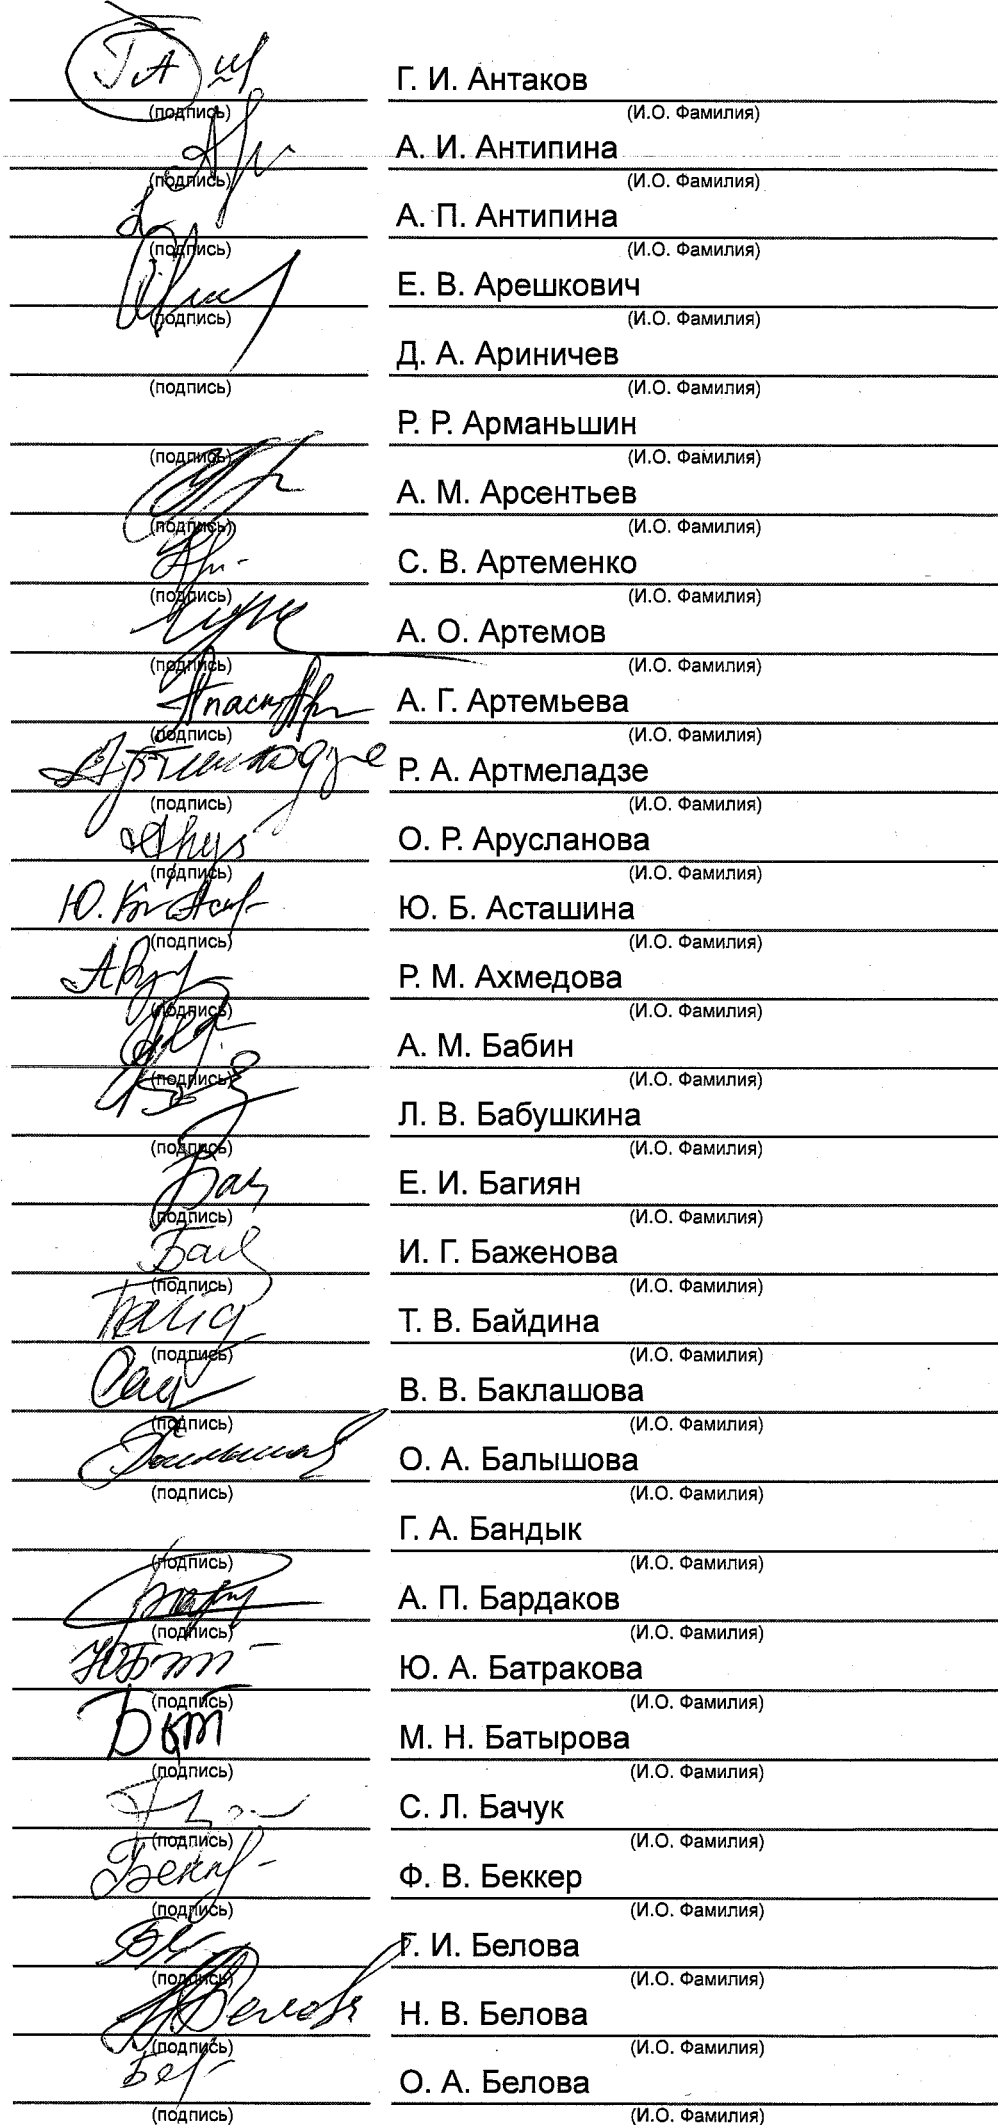 Г. И. Антаков
(подпись) (И.О. Фамилия)
А. И. Антипина
(подпись) (И.О. Фамилия)
А. П. Антипина
(подпись) (И.О. Фамилия)
Е. В. Арешкович
(подпись) (И.О. Фамилия)
Д. А. Ариничев
(подпись) (И.О. Фамилия)
Р. Р. Арманьшин
(подпись) (И.О. Фамилия)
А. М. Арсентьев
(подпись) (И.О. Фамилия)
С. В. Артеменко
(подпись) (И.О. Фамилия)
А. О. Артемов
(подпись) (И.О. Фамилия)
А. Г. Артемьева
(подпись) (И.О. Фамилия)
Р. А. Артмеладзе
(подпись) (И.О. Фамилия)
О. Р. Арусланова
(подпись) (И.О. Фамилия)
Ю. Б. Асташина
(подпись) (И.О. Фамилия)
Р. М. Ахмедова
(подпись) (И.О. Фамилия)
А. М. Бабин
(подпись) (И.О. Фамилия)
Л. В. Бабушкина
(подпись) (И.О. Фамилия)
Е. И. Багиян
(подпись) (И.О. Фамилия)
И. Г. Баженова
(подпись) (И.О. Фамилия)
Т. В. Байдина
(подпись) (И.О. Фамилия)
В. В. Баклашова
(подпись) (И.О. Фамилия)
О. А. Балышова
(подпись) (И.О. Фамилия)
Г. А. Бандык
(подпись) (И.О. Фамилия)
А. П. Бардаков
(подпись) (И.О. Фамилия)
Ю. А. Батракова
(подпись) (И.О. Фамилия)
М. Н. Батырова
(подпись) (И.О. Фамилия)
С. Л. Бачук
(подпись) (И.О. Фамилия)
Ф. В. Беккер
(подпись) (И.О. Фамилия)
Г. И. Белова
(подпись) (И.О. Фамилия)
Белова Н. В. Белова
(подпись) (И.О. Фамилия)
О. А. Белова
(подпись) (И.О. Фамилия)